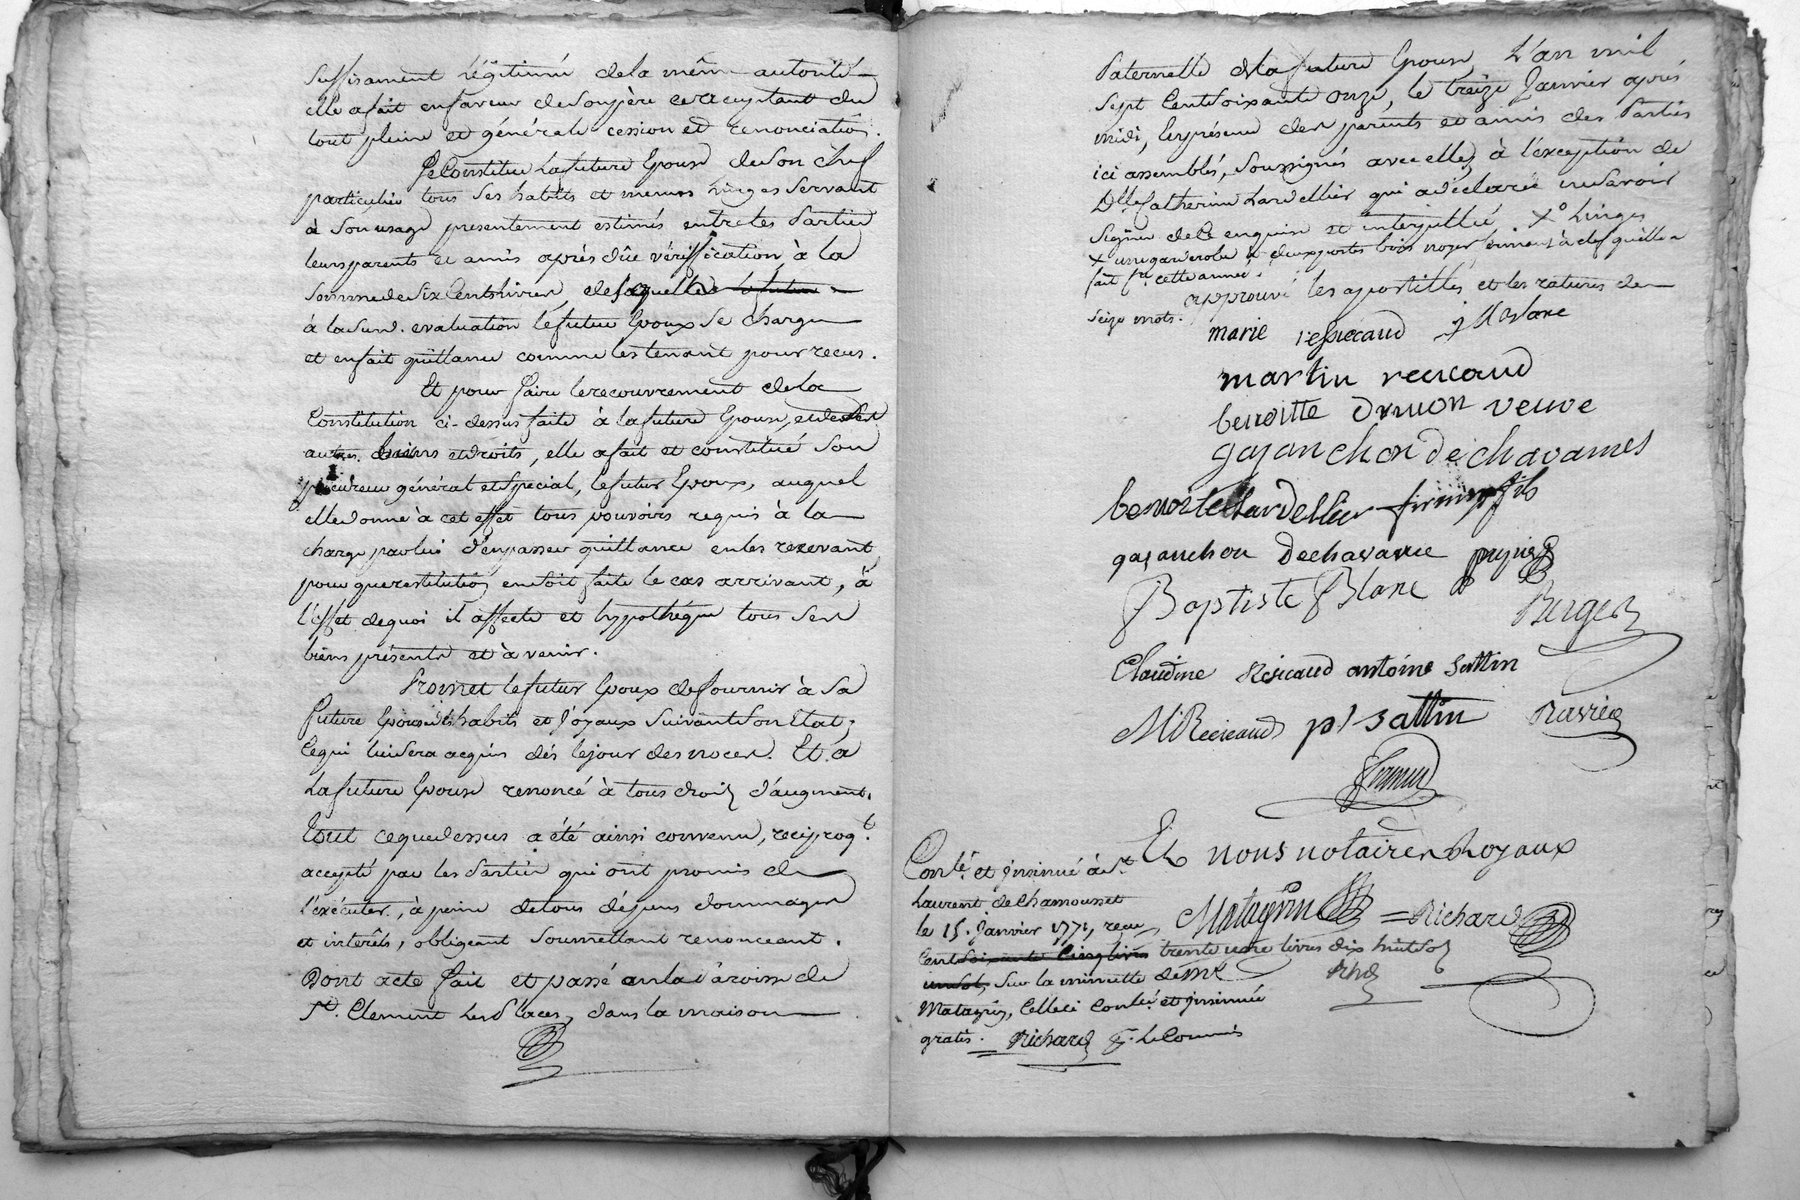 suffisament légitimée de la même autorité
elle a fait en faveur de son père ce acceptant du
tout pleine et générale cession et renonciation.
Se Constitue la future Epouse de Son chef
particulier tous Ses habits et menus Linges Servant
à Son usage presentement estimés entre les Parties
leurs parents et amis aprés düe vériffication, à la
Somme de Six Cents livres, de laquelle
à la Susd. evaluation le futur Epoux Se charge
et en fait quittance comme les tenant pour recus.
Et pour faire le recouvrement de la
Constitution ci-dessus faite à la future Epouse, et de Ses
autres biens et droits, elle a fait et constitué Son
procureur général et Special, le futur Epoux, auquel
elle donne à cet effet tous pouvoirs requis à la
charge par lui d'en passer quittance en les recevant,
pour que restitution en soit faite le cas arrivant, à
l'effet de quoi il affecte et hypothéque tous Ses
biens présents et à venir.
Promet le futur Epoux de fournir à Sa
future Epouse des habits et Joyaux Suivant Son Etat,
Ce qui lui Sera acquis dés le jour des noces. Et a
La future Epouse renoncé à tous droits d'augment.
Tout ce que dessus a été ainsi convenu, reciproq.t
accepté par les Parties qui ont promis de
l'exécuter, à peine de tous dépens dommages
et interêts, obligeant Soumettant renonceant.
Dont acte fait et passé en la Paroisse de
St. Clement Les Places, dans la maison
Paternelle de la future Epouse, L'an mil
Sept Cent Soixante onze, le treize Janvier aprés
midi, En présence des parents et amis des Parties
ici assemblés, Soussignés avec elles, à l'exception de
Dlle. Catherine Lardellier qui a déclaré ne Savoir
Signer de ce enquise et interpellée X° Linges
X une garderobe à deux portes bois noyer, fermant à clef qu'elle a
fait fre. cette année.
approuvé les apostilles et les ratures de
Seize mots.
marie resicaud J M Blanc
martin resicaud
benoitte druon veuve
gajanchon de chavames
benoitte Lardellier firmin fils
gajanchon Dechavanne
Baptiste Blanc Berger
Claudine Resicaud antoine Sattin
M Resicaud p Sattin Ravier
Et nous notaires Royaux
Conlé. et Jnsinué à St.
Laurent de Chamousset
le 15. Janvier 1771, recu Matagrin = Richard
Cent Soixante Cinq livres trente une livres dix huit Sols
un Sol, Sur la minutte de Me
Matagrin, Celleci Conlée et Jnsinuée
gratis. Richard